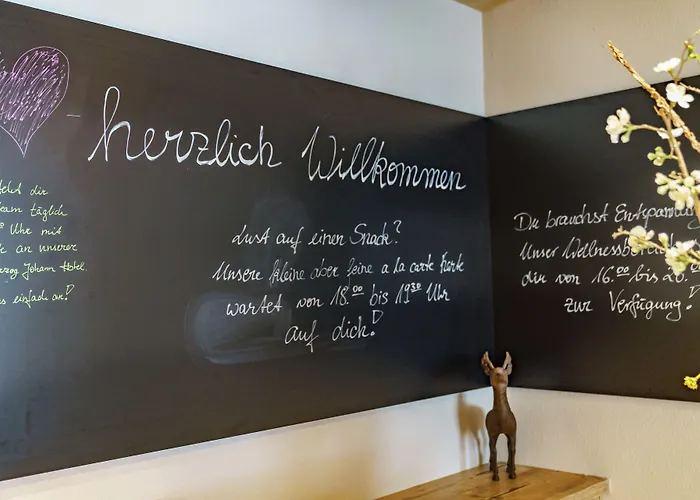 herzlich Willkommen
dir
täglich
Uhr mit
an unserer
Johann Hotel.
es einfach an!
Lust auf einen Snack?
Unsere kleine aber feine a la carte Karte
wartet von 18.00 bis 19.30 Uhr
auf dich!
Du brauchst Entspannung
Unser Wellnessbereich
dir von 16.00 bis 20.
zur Verfügung!